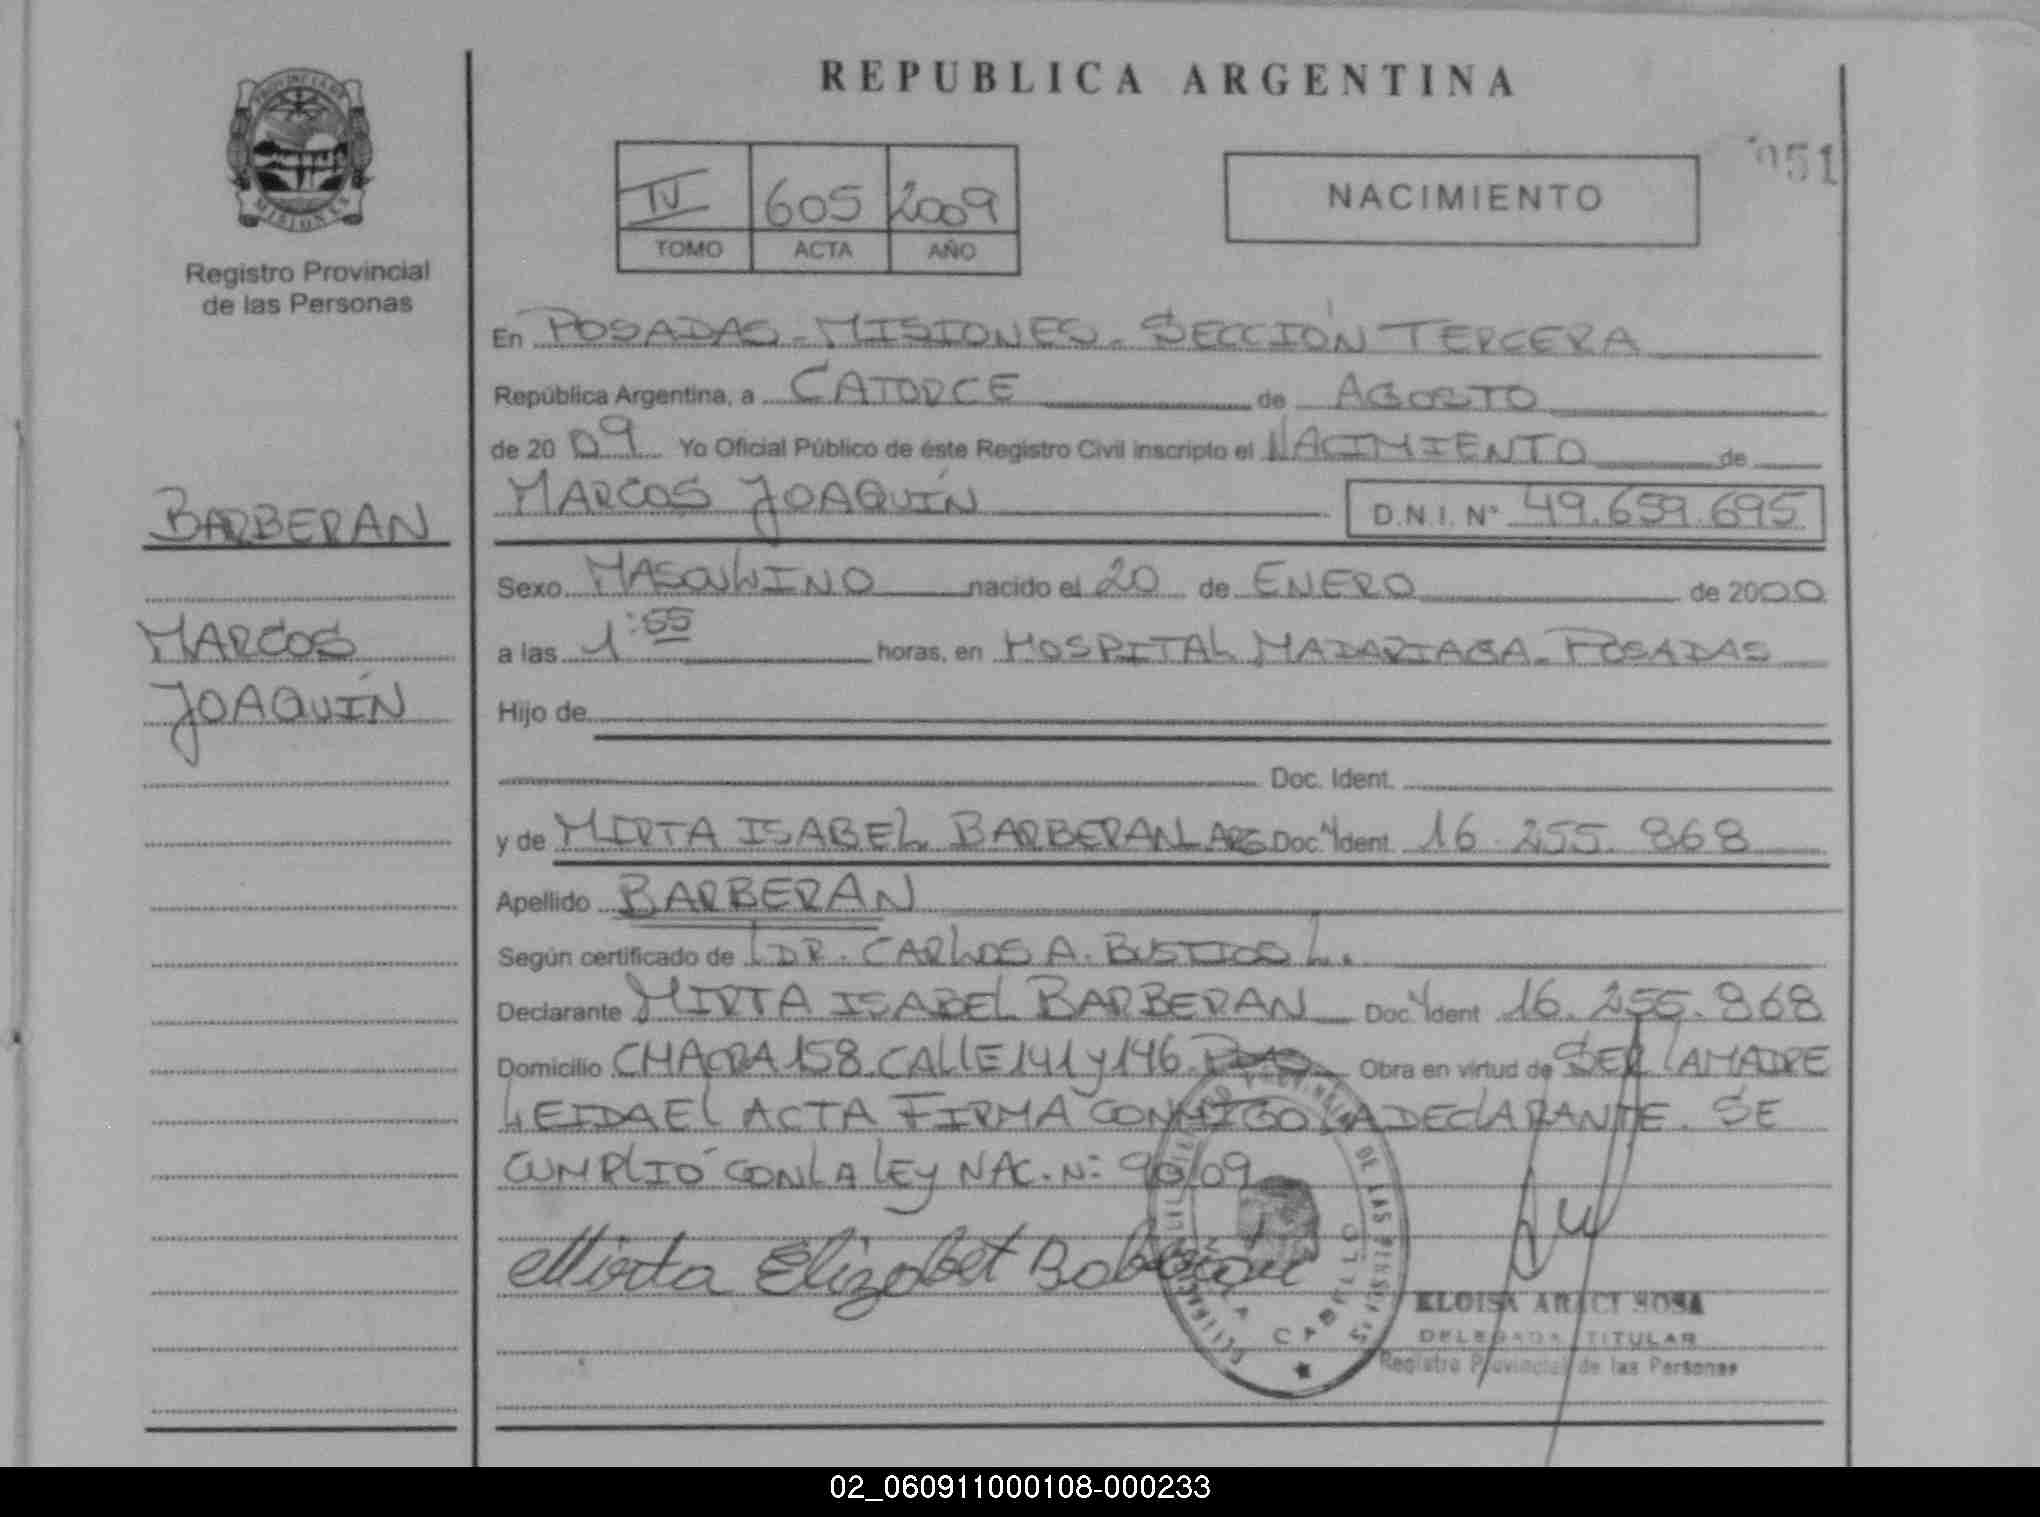 PROVINCIA DE
MISIONES
Registro Provincial
de las Personas
BARBERAN
MARCOS
JOAQUÍN
REPUBLICA ARGENTINA
IV 605 2009
TOMO ACTA AÑO
NACIMIENTO
051
En POSADAS - MISIONES - SECCIÓN TERCERA
República Argentina, a CATORCE de AGOSTO
de 2009 Yo Oficial Público de éste Registro Civil inscripto el NACIMIENTO de
MARCOS JOAQUÍN D.N.I. N° 49.659.695
Sexo MASCULINO nacido el 20 de ENERO de 2000
a las 1:55 horas, en HOSPITAL MADARIAGA - POSADAS
Hijo de
Doc. Ident.
y de MIRTA ISABEL BARBERAN ARG Doc. Ident. 16.255.868
Apellido BARBERAN
Según certificado de DR. CARLOS A. BUSTIOS L.
Declarante MIRTA ISABEL BARBERAN Doc. Ident 16.255.868
Domicilio CHACRA 158. CALLE 141 y 146. PDAS Obra en virtud de SER LA MADRE
LEIDA EL ACTA FIRMA CONMIGO LA DECLARANTE. SE
CUMPLIÓ CON LA LEY NAC. N: 90/09
Mirta Elizabet
DE LAS PERSONAS
ELOISA ARACI SOSA
DELEGADA TITULAR
Registro Provincial de las Personas
02_060911000108-000233